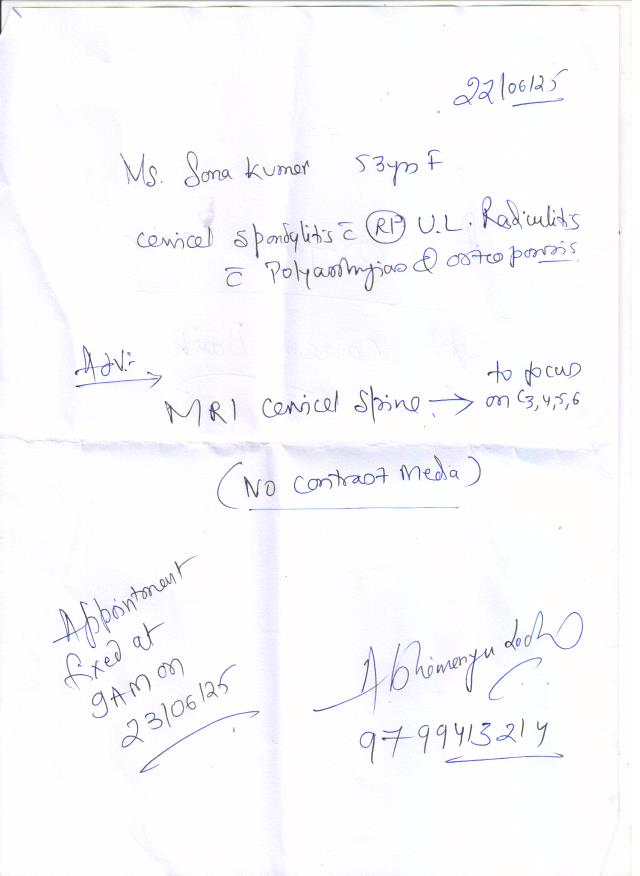 22/06/25
Ms. Sona Kumar 53yrs F
Cervical Spondylitis c̄ Rt U.L. Radiculitis
c̄ Polyarthrgias & osteoporosis
Adv:-
MRI Cervical Spine → to focus
on C3,4,5,6
(NO Contrast Media)
Appointment
fixed at
9AM on
23/06/25
Abhimanyu
9799413214